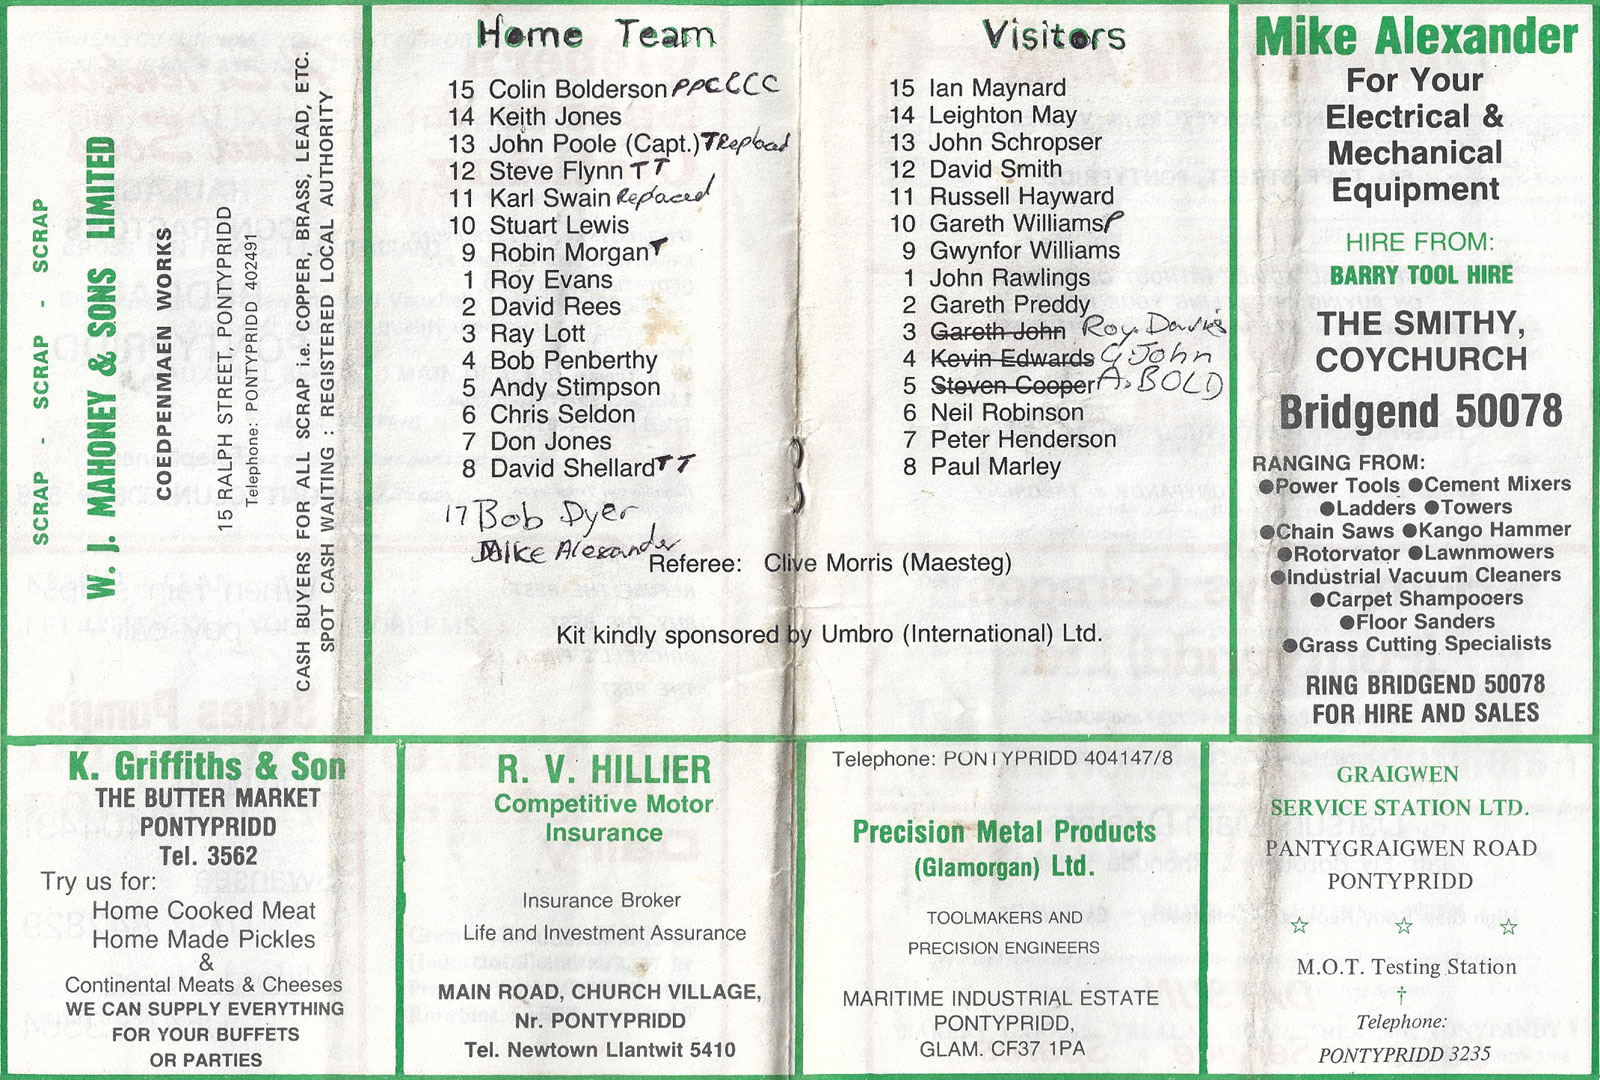 SCRAP - SCRAP - SCRAP
W. J. MAHONEY & SONS LIMITED
COEDPENMAEN WORKS
15 RALPH STREET, PONTYPRIDD
Telephone: PONTYPRIDD 402491
CASH BUYERS FOR ALL SCRAP i.e. COPPER, BRASS, LEAD, ETC.
SPOT CASH WAITING : REGISTERED LOCAL AUTHORITY
Home Team
15 Colin Bolderson PPCCCC
14 Keith Jones
13 John Poole (Capt.) T Replaced
12 Steve Flynn T T
11 Karl Swain Replaced
10 Stuart Lewis
9 Robin Morgan T
1 Roy Evans
2 David Rees
3 Ray Lott
4 Bob Penberthy
5 Andy Stimpson
6 Chris Seldon
7 Don Jones
8 David Shellard T T
17 Bob Dyer
Mike Alexander
Visitors
15 Ian Maynard
14 Leighton May
13 John Schropser
12 David Smith
11 Russell Hayward
10 Gareth Williams P
9 Gwynfor Williams
1 John Rawlings
2 Gareth Preddy
3 Gareth John Roy Davies
4 Kevin Edwards G John
5 Steven Cooper A. BOLD
6 Neil Robinson
7 Peter Henderson
8 Paul Marley
Referee: Clive Morris (Maesteg)
Kit kindly sponsored by Umbro (International) Ltd.
Mike Alexander
For Your
Electrical &
Mechanical
Equipment
HIRE FROM:
BARRY TOOL HIRE
THE SMITHY,
COYCHURCH
Bridgend 50078
RANGING FROM:
●Power Tools ●Cement Mixers
●Ladders ●Towers
●Chain Saws ●Kango Hammer
●Rotorvator ●Lawnmowers
●Industrial Vacuum Cleaners
●Carpet Shampooers
●Floor Sanders
●Grass Cutting Specialists
RING BRIDGEND 50078
FOR HIRE AND SALES
K. Griffiths & Son
THE BUTTER MARKET
PONTYPRIDD
Tel. 3562
Try us for:
Home Cooked Meat
Home Made Pickles
&
Continental Meats & Cheeses
WE CAN SUPPLY EVERYTHING
FOR YOUR BUFFETS
OR PARTIES
R. V. HILLIER
Competitive Motor
Insurance
Insurance Broker
Life and Investment Assurance
MAIN ROAD, CHURCH VILLAGE,
Nr. PONTYPRIDD
Tel. Newtown Llantwit 5410
Telephone: PONTYPRIDD 404147/8
Precision Metal Products
(Glamorgan) Ltd.
TOOLMAKERS AND
PRECISION ENGINEERS
MARITIME INDUSTRIAL ESTATE
PONTYPRIDD,
GLAM. CF37 1PA
GRAIGWEN
SERVICE STATION LTD.
PANTYGRAIGWEN ROAD
PONTYPRIDD
☆ ☆ ☆
M.O.T. Testing Station
†
Telephone:
PONTYPRIDD 3235